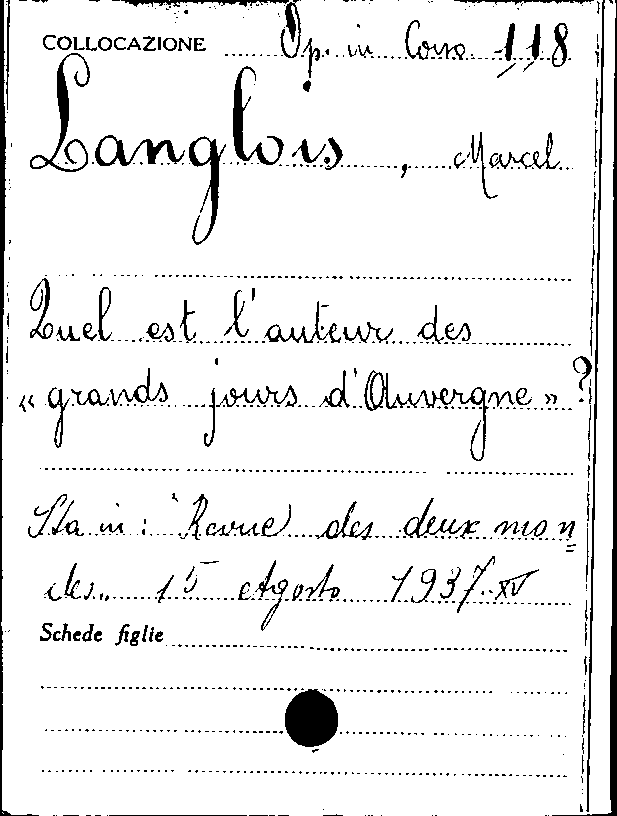 COLLOCAZIONE Op. in Corso 118
Langlois, Marcel
Quel est l'auteur des
« grands jours d'Auvergne » ?
Sta in: "Revue des deux mon=
des" 15 Agosto 1937-XV
Schede figlie